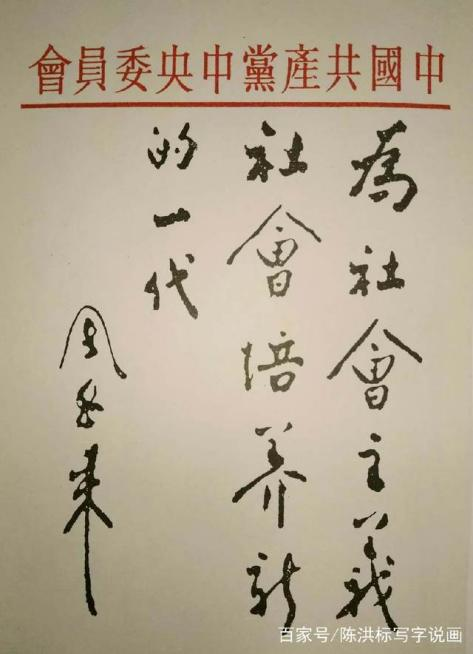 中國共產黨中央委員會
為社會主義
社會培养新
的一代
周恩來
百家号/陈洪标写字说画